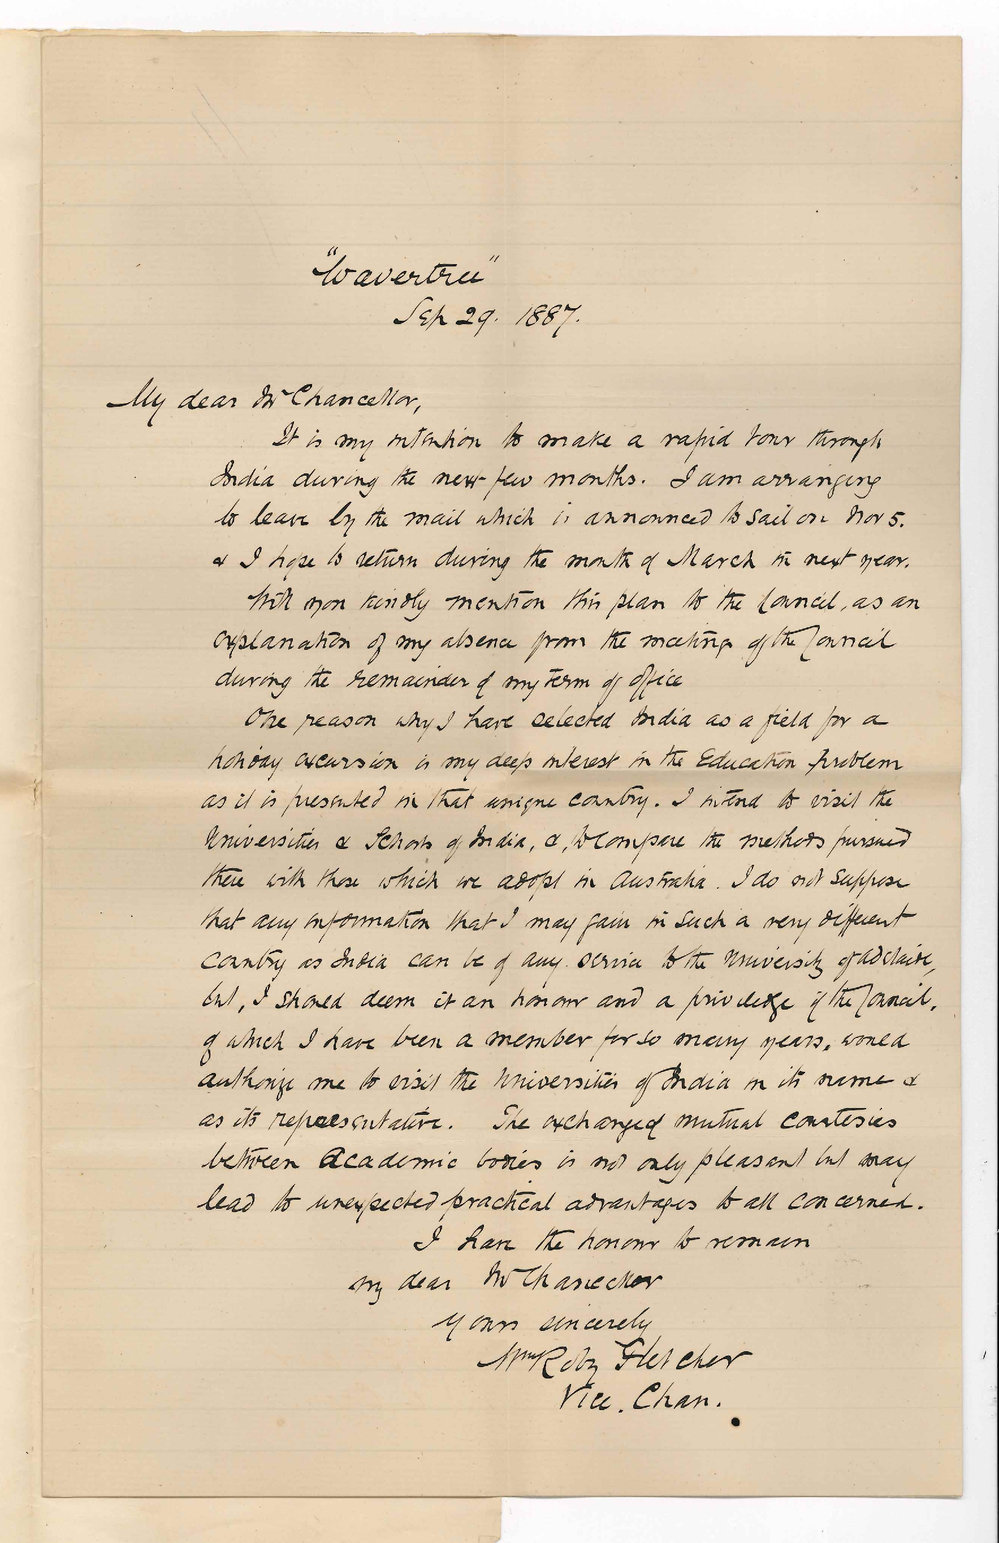 "Wavertree"
Sep 29. 1887.
My dear Mr Chancellor,
It is my intention to make a rapid tour through
India during the next few months. I am arranging
to leave by the mail which is announced to sail on Nov 5.
& I hope to return during the month of March in next year.
Will you kindly mention this plan to the Council, as an
explanation of my absence from the meetings of the Council
during the remainder of my term of office
One reason why I have selected India as a field for a
holiday excursion is my deep interest in the Education problem
as it is presented in that unique country. I intend to visit the
Universities & Schools of India, &, to compare the methods pursued
there with those which we adopt in Australia. I do not suppose
that any information that I may gain in such a very different
country as India can be of any service to the University of Adelaide,
but, I should deem it an honour and a privilege if the Council,
of which I have been a member for so many years, would
authorize me to visit the Universities of India in its name &
as its representative. The exchange of mutual courtesies
between Academic bodies is not only pleasant but may
lead to unexpected practical advantages to all concerned.
I have the honour to remain
my dear Mr Chancellor
Yours sincerely
Wm Roby Fletcher
Vice. Chan.